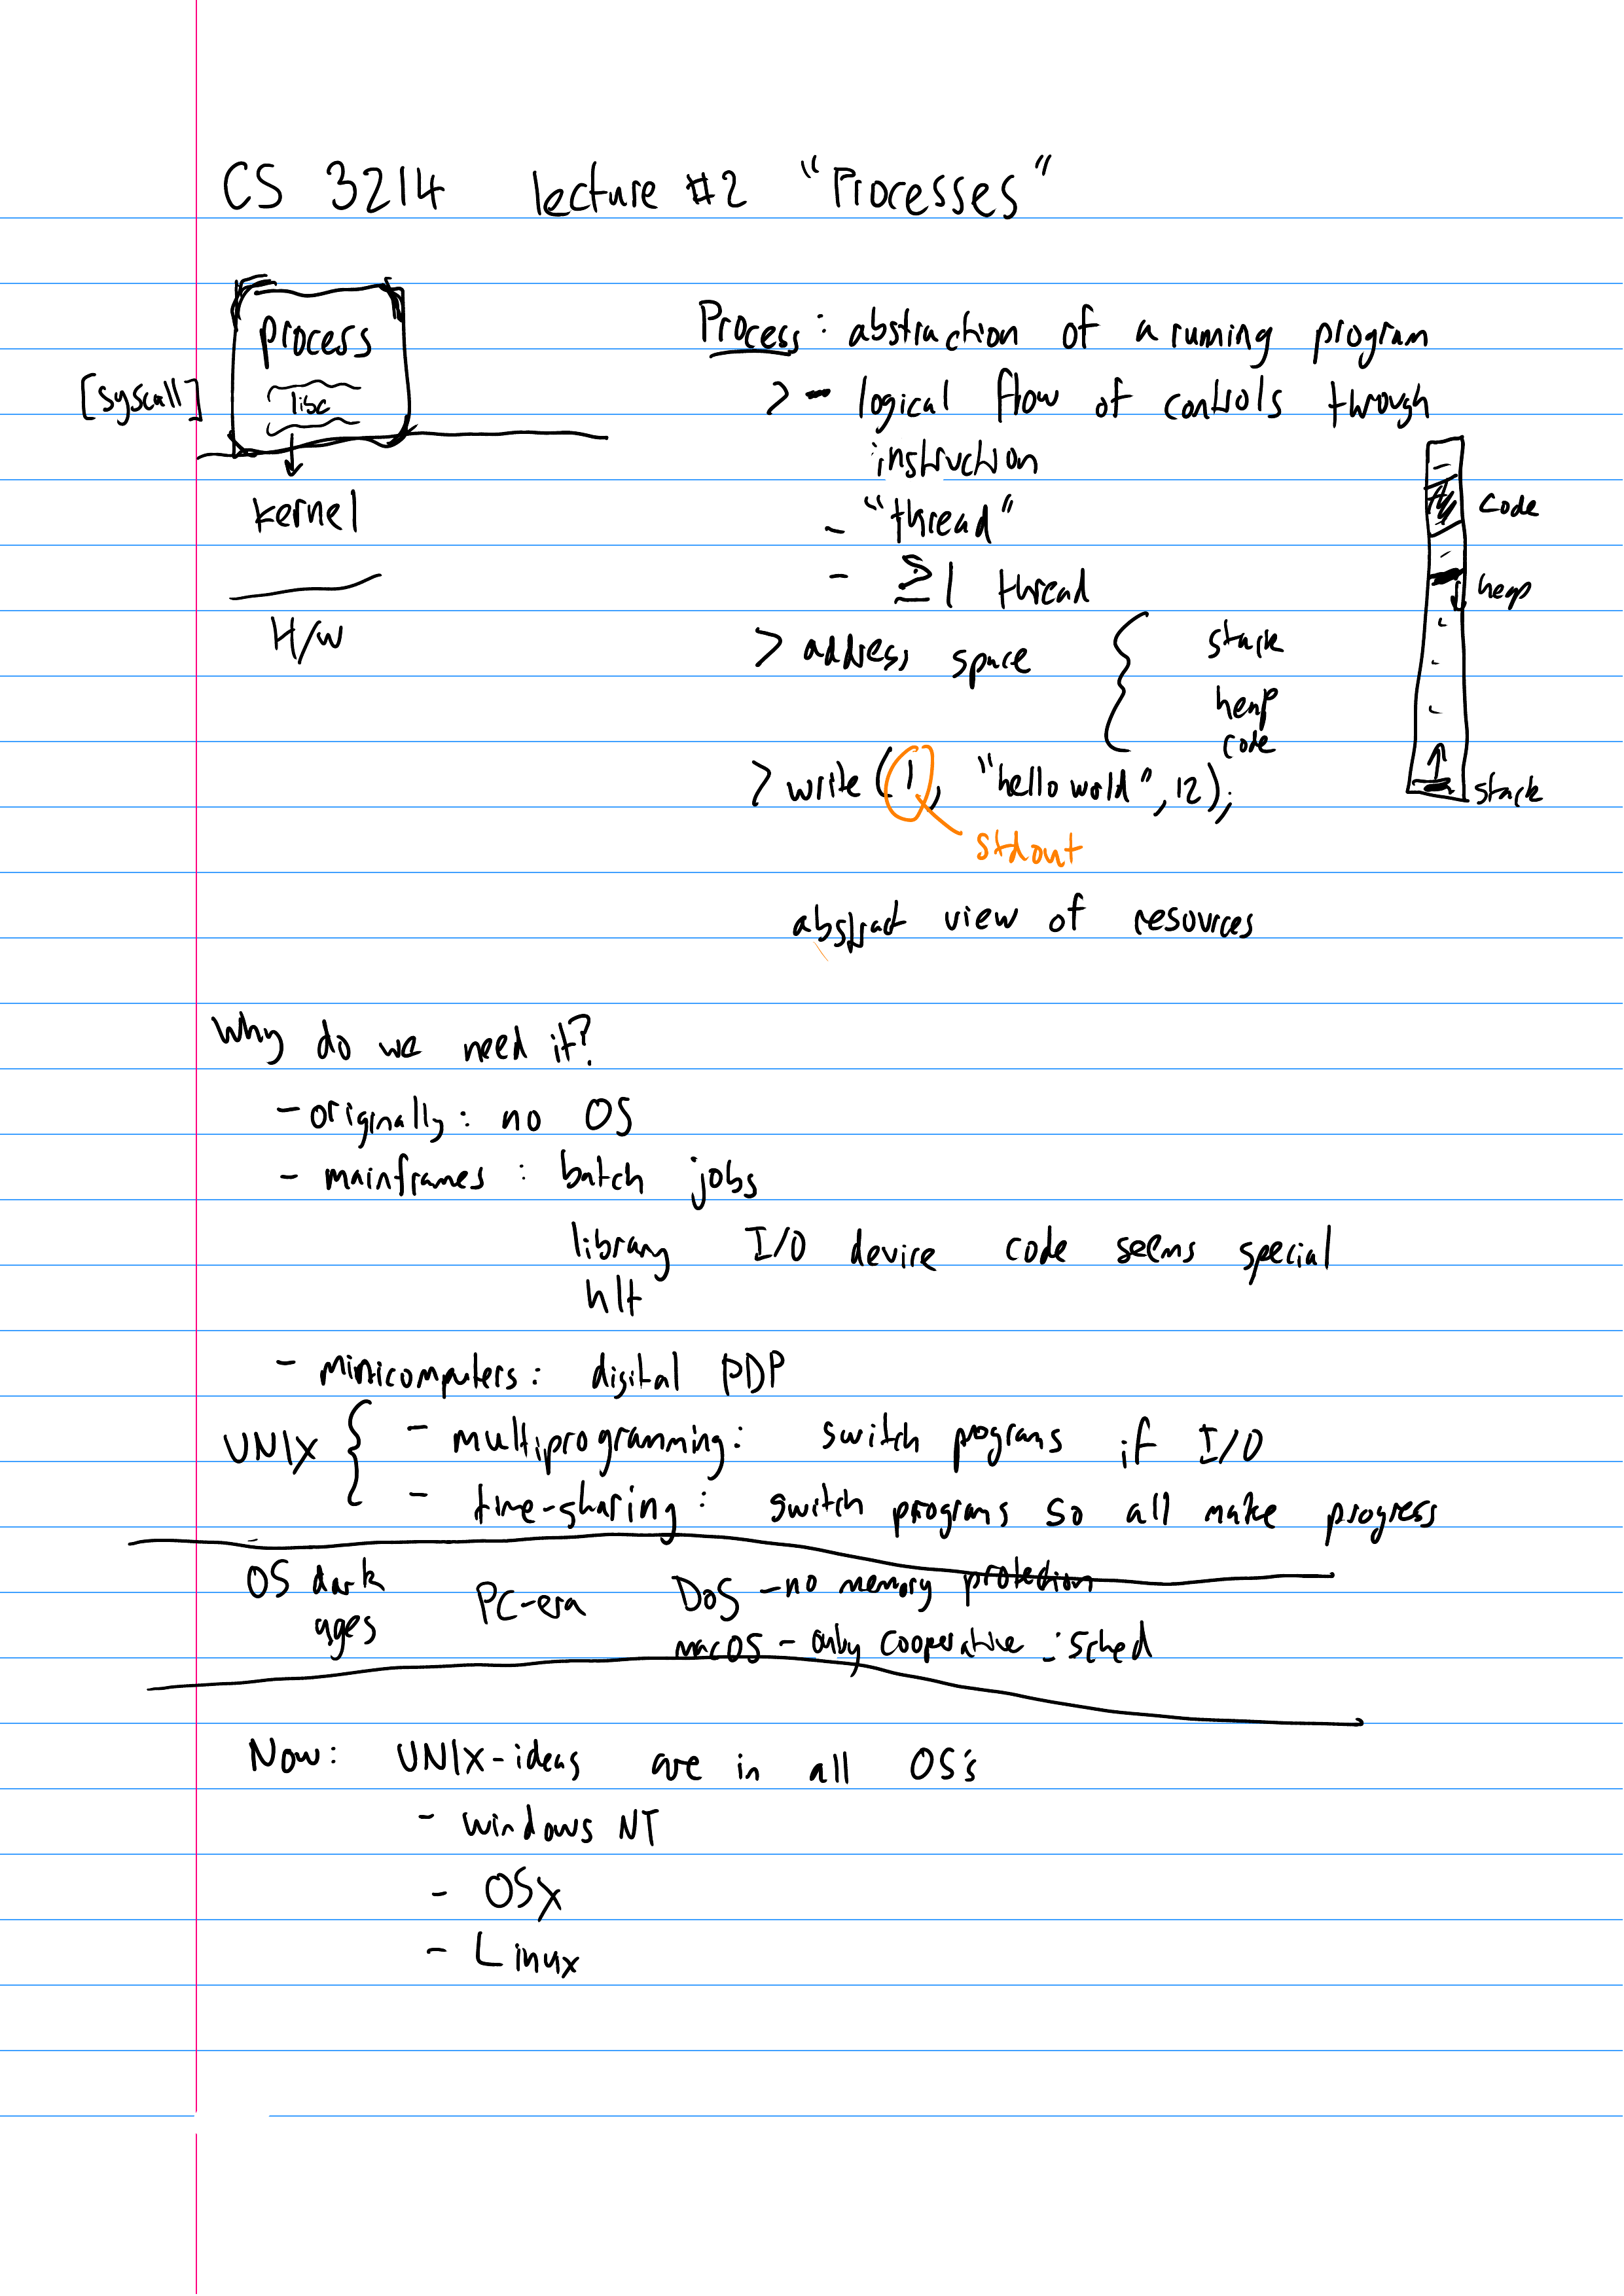 CS 3214 lecture #2 "Processes"
process
[syscall]
libc
kernel
H/W
Process: abstraction of a running program
> - logical flow of controls through
instruction
- "thread"
- ≥1 thread
> address space { stack
heap
code
> write (1, "hello world", 12);
stdout
abstract view of resources
code
heap
stack
Why do we need it?
- originally: no OS
- mainframes: batch jobs
library I/O device code seems special
hlt
- minicomputers: digital PDP
UNIX { - multiprogramming: switch programs if I/O
- time-sharing: switch programs so all make progress
OS dark ages
PC-era
DOS - no memory protection
macOS - only cooperative - sched
Now: UNIX-ideas are in all OS's
- windows NT
- OSX
- Linux